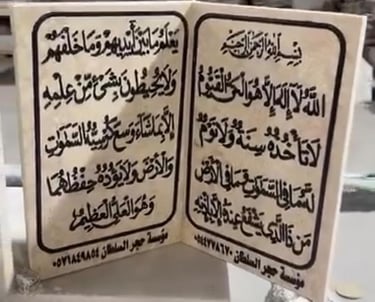 بسم الله الرحمن الرحيم
الله لا إله إلا هو الحي القيوم
لا تأخذه سنة ولا نوم
له ما في السموات وما في الأرض
من ذا الذي يشفع عنده إلا بإذنه
يعلم ما بين أيديهم وما خلفهم
ولا يحيطون بشيء من علمه
إلا بما شاء وسع كرسيه السموات
والأرض ولا يؤده حفظهما
وهو العلي العظيم
مؤسسة حجر السلطان
مؤسسة حجر السلطان ٠٥٧١٨٤٩٨٥٤